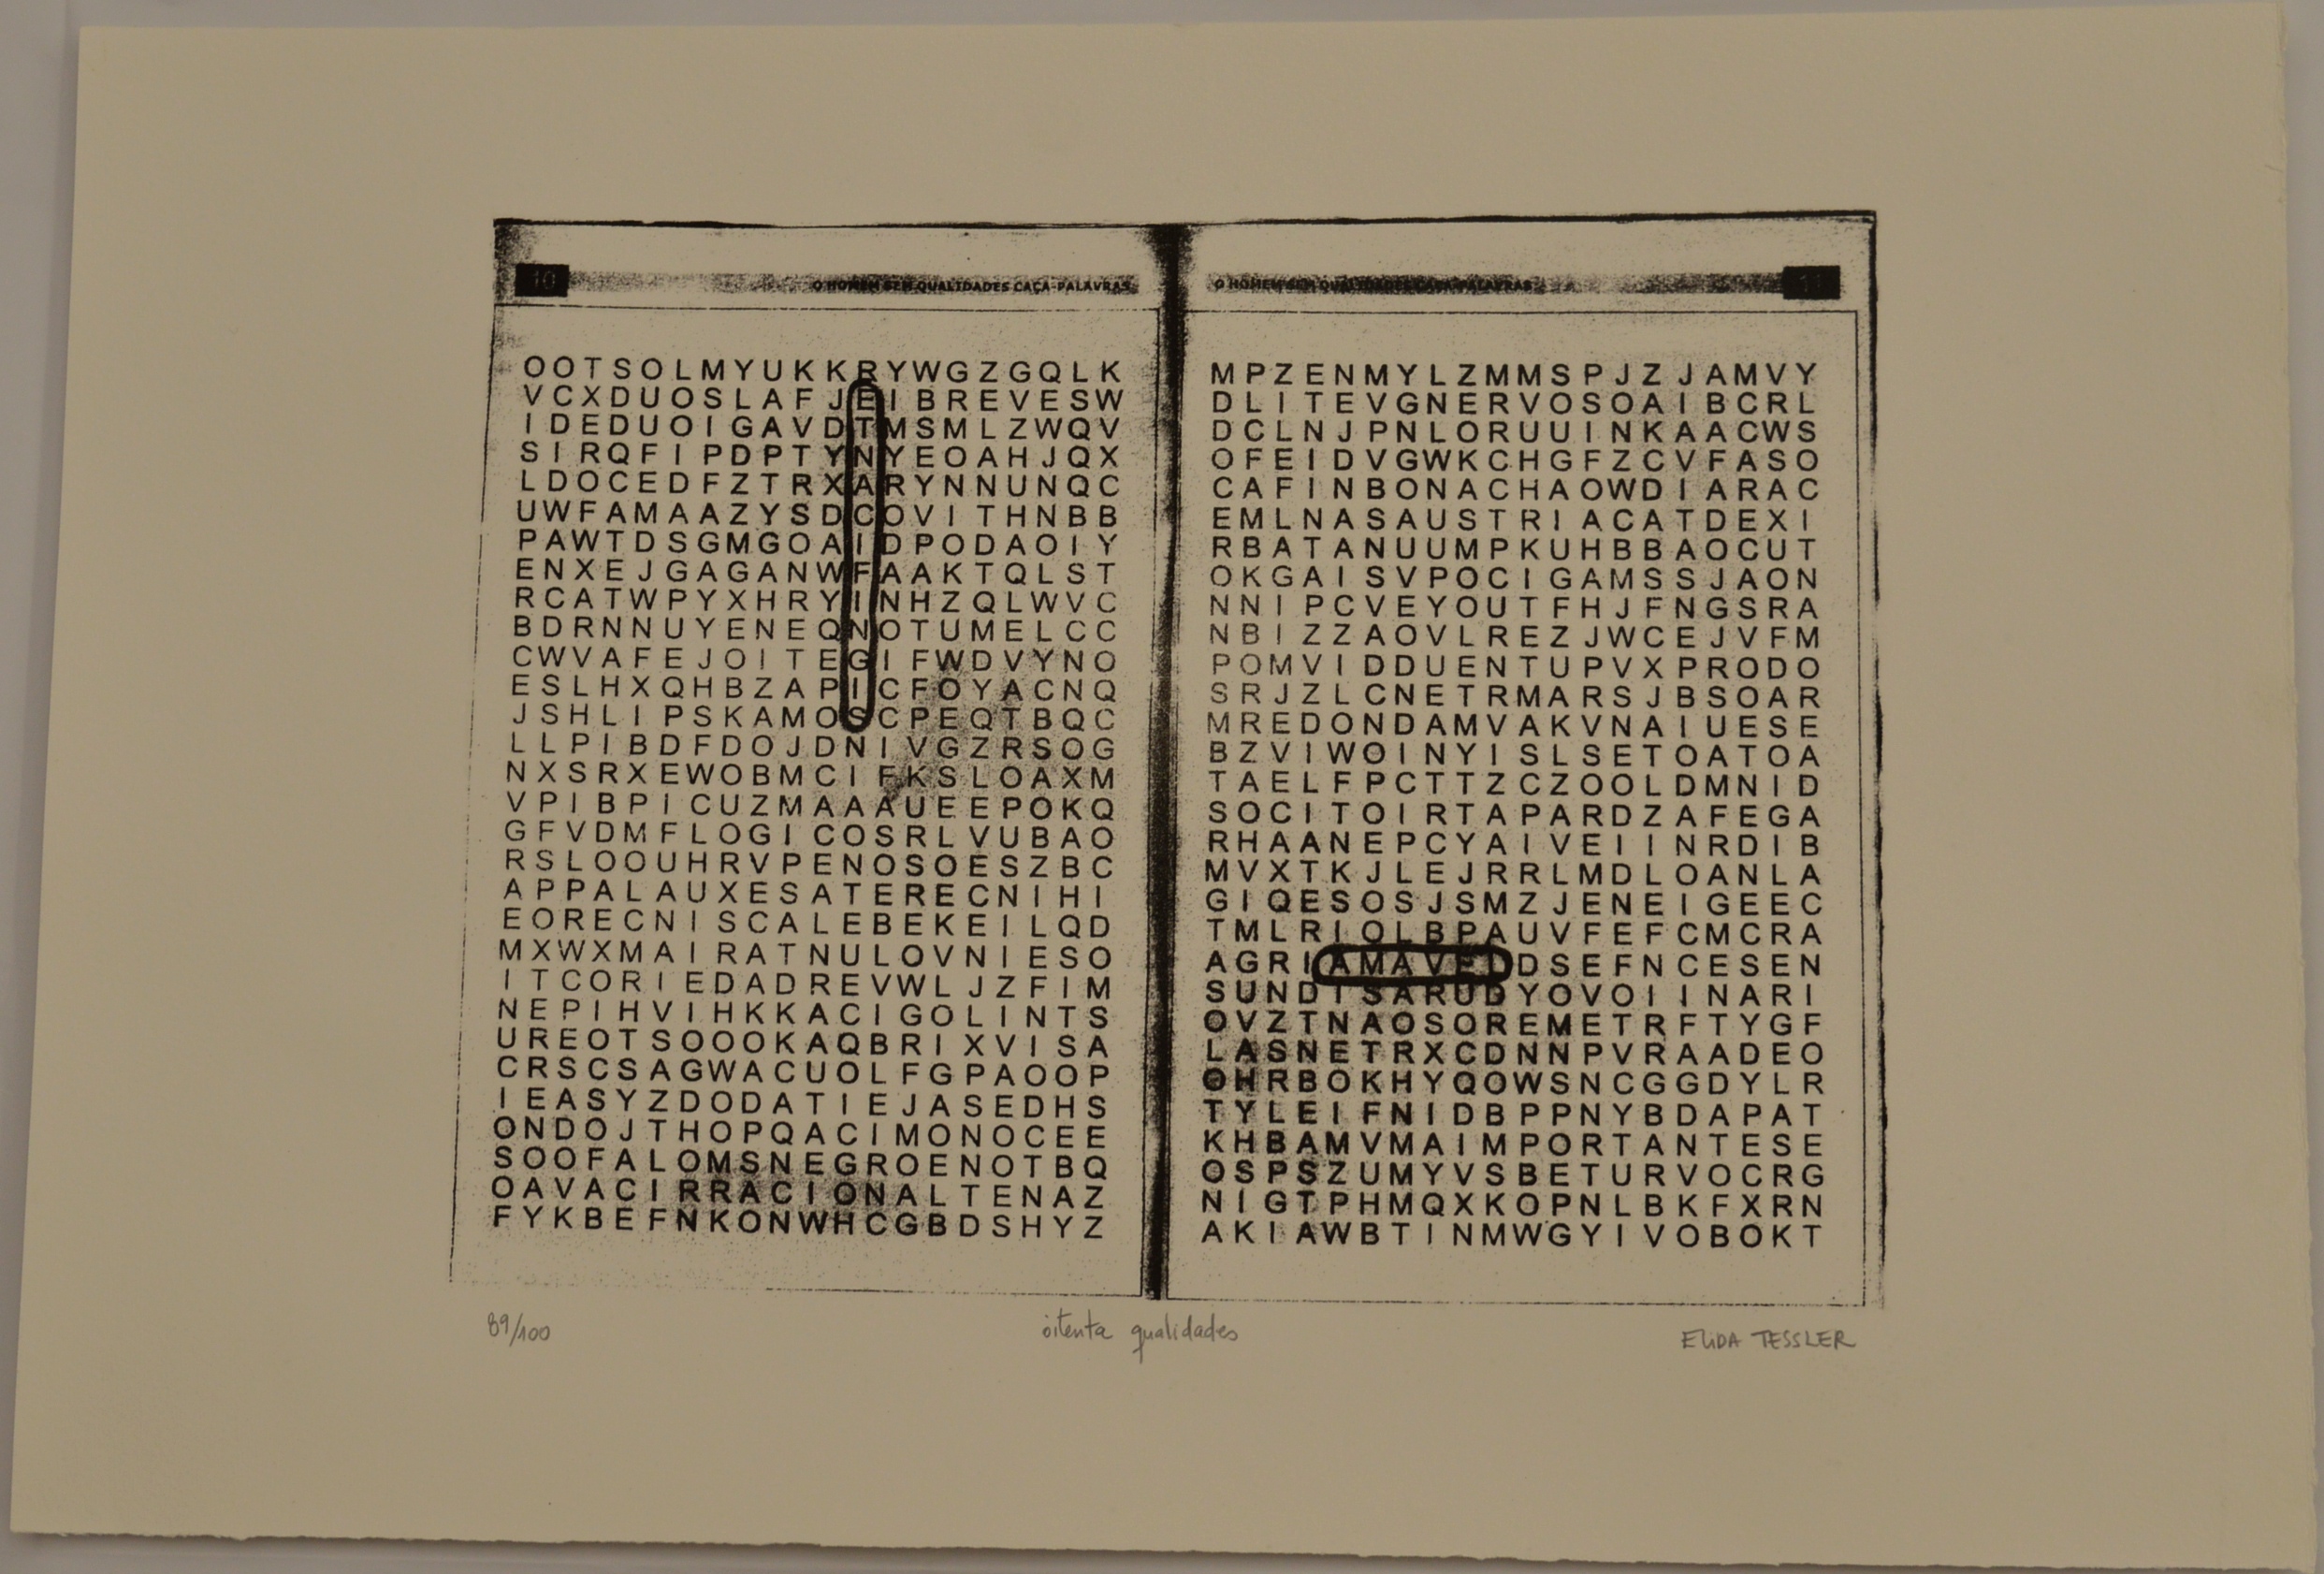 10
O HOMEM SEM QUALIDADES CAÇA-PALAVRAS
OOTSOLMYUKKRYWGZGQLK
VCXDUOSLAFJEIBREVESW
IDEDUOIGAVDTMSMLZWQV
SIRQFIPDPTYNYEOAHJQX
LDOCEDFZTRXARYNNUNQC
UWFAMAAZYSDCOVITHNBB
PAWTDSGMGOAIDPODAOIY
ENXEJGAGANWFAAKTQLST
RCATWPYXHRYINHZQLWVC
BDRNNUYENEQNOTUMELCC
CWVAFEJOITEGIFWDVYNO
ESLHXQHBZAPICFOYACNQ
JSHLIPSKAMOSCPEQTBQC
LLPIBDFDOJDNIVGZRSOG
NXSRXEWOBMCIFKSLOAXM
VPIBPICUZMAAAUEEPOKQ
GFVDMFLOGICOSRLVUBAO
RSLOOUHRVPENOSOESZBC
APPALAUXESATERECNIHI
EORECNISCALEBEKEILQD
MXWXMAIRATNULOVNIESO
ITCORIEDADREVWLJZFIM
NEPIHVIHKKACIGOLINTS
UREOTSOOOKAQBRIXVISA
CRSCSAGWACUOLFGPAOOP
IEASYZDODATIEJASEDHS
ONDOJTHOPQACIMONOCEE
SOOFALOMSNEGROENOTBQ
OAVACIRRACIONALTENAZ
FYKBEFNKONWHCGBDSHYZ
O HOMEM SEM QUALIDADES CAÇA-PALAVRAS
MPZENMYLZMMSPJZJAMVY
DLITEVGNERVOSOAIBCRL
DCLNJPNLORUUINKAACWS
OFEIDVGWKCHGFZCVFASO
CAFINBONACHAOWDIARAC
EMLNASAUSTRIACATDEXI
RBATANUUMPKUHBBAOCUT
OKGAISVPOCIGAMSSJAON
NNIPCVEYOUTFHJFNGSRA
NBIZZAOVLREZJWCEJVFM
POMVIDDUENTUPVXPRODO
SRJZLCNETRMARSJBSOAR
MREDONDAMVAKVNAIUESE
BZVIWOINYISLSETOATOA
TAELFPCTTZCZOOLDMNID
SOCITOIRTAPARDZAFEGA
RHAANEPCYAIVEIINRDIB
MVXTKJLEJRRLMDLOANLA
GIQESOSJSMZJENEIGEEC
TMLRIOLBPAUVFEFCMCRA
AGRIAMAVELDSEFNCESEN
SUNDISARUDYOVOIINARI
OVZTNAOSOREMETRFTYGF
LASNETRXCDNNPVRAADEO
OHRBOKHYQOWSNCGGDYLR
TYLEIFNIDBPPNYBDAPAT
KHBAMVMAIMPORTANTESE
OSPSZUMYVSBETURVOCRG
NIGTPHMQXKOPNLBKFXRN
AKIAWBTINMWGYIVOBOKT
89/100
oitenta qualidades
ELIDA TESSLER